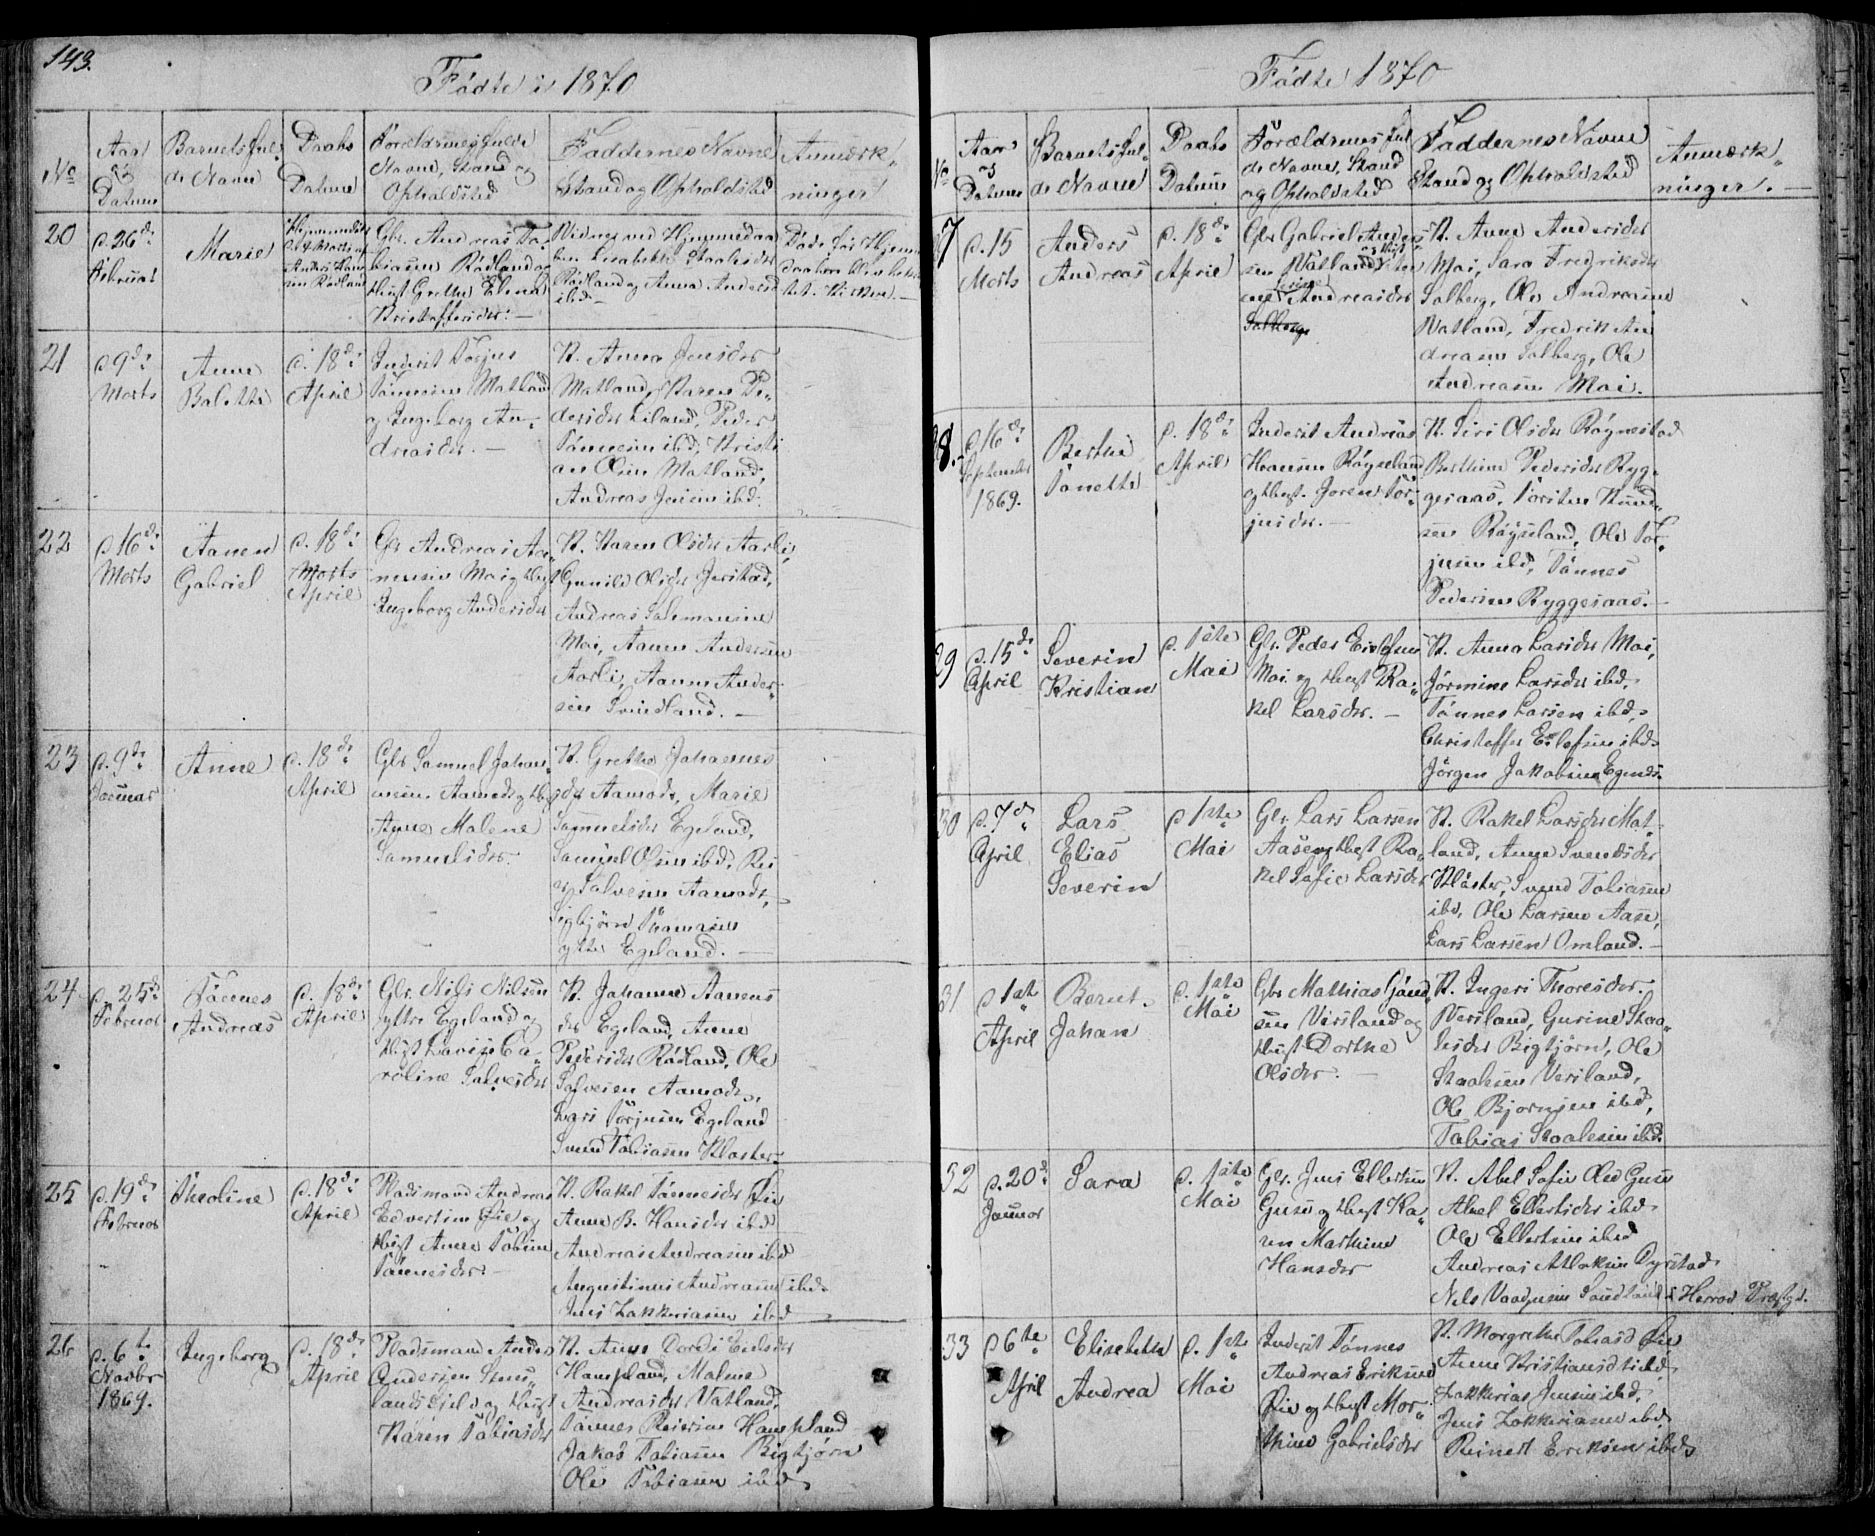 143.
Födte i 1870
No
Aar og Datum
Barnets fulde Navne
Daabs Datum
Forældrenes fulde Navne, Stand og Opholdsted
Faddernes Navne Stand og Opholdsted
Anmærkninger
20
d. 26de Februar
Marie
Gbr. Andreas Tobiassen Rödland og Hust Grethe Elene Kristoffersdr. —
Rödland og Anna Andersd ibd —
21
d. 9de Marts
Anne
Balette
d. 18de April
Inderst Törjus
Tönnesen Matland
og Ingeborg An-
dreasdr. —
K. Anna Jensdr
Matland, Karen Pe-
dersdr Eiland, Peder
Tönnesen ibd, Kristi
an Olsen Matland,
Andreas Jensen ibd.
22
d. 16de Marts
Aanen
Gabriel
d. 18de
Marts
April
Gbr Andreas Aa-
nensen Moi og Hust
Ingeborg Andersdr
K. Karen Olsdr Aarli,
Gunild Olsdr Jerstad,
Andreas Salemonsen
Moi, Aanen Andersen
Aarli, Aanen Ander-
sen Svindland. —
23
d. 9de Januar
Anne
d. 18de April
Gbr Samuel Johan-
nesen Aamodt og Hust
Anne Malene
Samuelsdr.
K. Grethe Johannes
dtr Aamodt, Marie
Samuelsdr Egeland,
Samuel Olsen ibd, Rei
er Salvesen Aamodt,
Sigbjörn Thomasen
ytte Egeland. —
24
d. 25de Februar
Tönnes
Andreas
d. 18de April
Gbr. Nils Nilsen
yttre Egeland og
Hust Lavise Ca-
roline Salvesdr
K. Johanne Aanens
dr Egeland, Anne
Pedersdr Rödland, Ole
Salvesen Aamodt,
Lars Törjusen Egeland
Svend Tobiassen Kloster.
25
d. 19de Februar
Theoline
d. 18de April
Pladsmand Andreas
Edvertsen Öie og
Hust Anne Tobine
Tönnesdr.
K. Rakel Tönnesdr Öie
Anne B. Hansdr ibd
Andreas Andreasen ibd
Augustinus Andreasen ibd.
Jens Zakkeriasen ibd
26
d. 6te Novbr 1869.
Ingeborg
d. 18de April
Pladsmand Anders
Andersen
og Hust
Karen Tobiasdr
K. Anne Dorde Eilsdr
Hampland, Malene
Andreasdr Vatland,
Tönnes Reiersen Hampland
Jakob Tobiasen Bigtjörn
Ole Tobiasen ibd
Födte 1870
No
Aar og Datum
Barnets fulde Navne
Daabs Datum
Forældrenes fulde Navne, Stand og Opholdsted
Faddernes Navne Stand og Opholdsted
Anmærkninger. —
27
d. 15 Marts
Anders
Andreas
d. 18de April
Gbr Gabriel Anders
sen Watland
Andreasdr
Salberg
K. Anne Andersdr
Moi, Sara Fredriksdr
Salberg, Ole Andreasen
Watland, Fredrik An
dreasen Salberg, Ole
Andreasen Moi.
28. —
d. 16de September 1869.
Berthe
Tonette
d. 18de April
Inderst Andreas
Hansen Röyseland
og Hust. Joren Tor-
jusdr. —
K. Siri Olsdr Röynestad
Berthine Pedersdr Ryg-
gesaas. Torsten Knud-
sen Röyseland, Ole Tor-
jusen ibd, Tönnes
Pedersen Ryggesaas. —
29
d. 15de April
Severin
Kristian
d. 1ste Mai
Gbr. Peder Eilefsen
Moi og Hust Ra-
kel Larsdr. —
K. Anna Larsdr Moi,
Jörmine Larsdr ibd,
Tönnes Larsen ibd,
Christoffer Eilefsen ibd
Jörgen Jakobsen Egends.
30
d. 7de April
Lars
Elias
Severin
d 1ste Mai
Gbr Lars Larsen
Aase og Hust Ra-
kel Sofie Larsdr
K. Rakel Larsdr Mat-
land, Anne Svendsdr
Kloster, Svend Tobiasen
ibd, Ole Larsen Aase,
Lars Larsen Omland. —
31
d 1ste April
Bernt
Johan
d. 1ste Mai
Gbr Mathias Gund
sen Versland og
Hust Dorthe
Olsdr. —
K. Ingeri Thoresdr.
Versland, Gurine Staa-
lesdr Bigtjörn, Ole
Staalesen Versland,
Ole Bjornsen ibd,
Tobias Staalesen ibd
32
d. 20de Januar
Sara
d. 1ste Mai
Gbr. Jens Ellertsen
Guse og Hust Ka-
ren Marthine
Hansdr
K. Abel Sofie Olsd Guse
Abel Ellertsdr ibd.
Ole Ellertsen ibd
Andreas Atlaksen Dyrstad
Nels Vaagesen Sandland i Herrad Præstgj.
33
d 6te April
Elisebeth
Andrea
d. 1ste Mai
Inderst Tönnes
Andreas Eriksen
Öie og Hust Mar-
thine Gabrielsdr
K. Margrethe Tobiasd Öie
Anne Kristiansd ibid,
Zakkerias Jensen ibd,
Jens Zakkeriasen ibd
Reinert Eriksen ibd